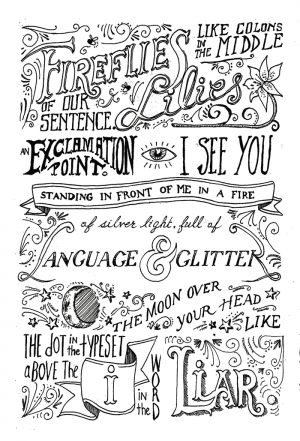 LIKE COLONS
IN THE MIDDLE
FIREFLIES
OF OUR
SENTENCE.
Lilies
AN EXCLAMATION
POINT.
I SEE YOU
STANDING IN FRONT OF ME IN A FIRE
of silver light, full of
LANGUAGE & GLITTER
THE MOON OVER
YOUR HEAD
LIKE
THE dOT in the TYPESET
aBOVE The
i
in the
WORD
LIAR.